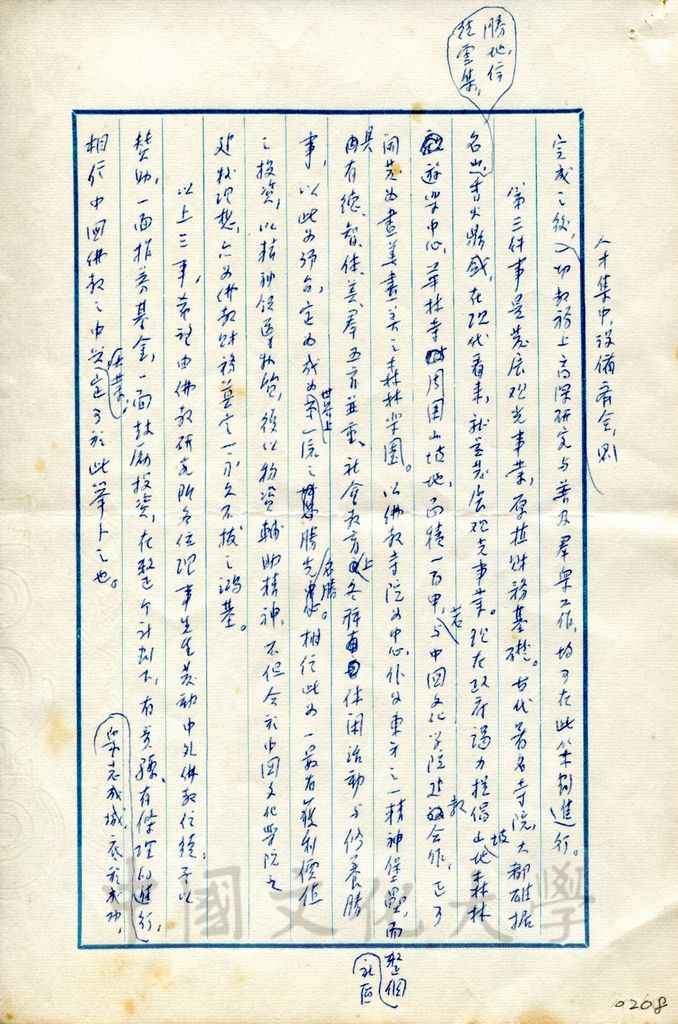 人才集中,設備齊全,則
完成之後,一切教務上高深研究與普及羣眾工作,均可在此策劃進行。
第三件事是發展觀光事業,厚植財務基礎。古代著名寺院,大都雄據
勝地,信徒雲集,
名山,香火鼎盛,在現代看來,就是發展觀光事業。現在政府竭力提倡山坡地森林
遊樂中心,華林寺周圍山坡地,面積一百甲,若與中國文化學院建教合作,正可
開先為盡美盡善之森林樂園。以佛教寺院為中心,作為東方之精神堡壘,而整個社區
具有德、智、体、美、羣五育並重,社會教育上各種休閒活動與修養勝
事,以此為號召,定為成為世界上第一流之觀光名勝。相信此為一最有獲利價值
之投資,以精神領導物質,復以物資輔助精神,不但合於中國文化學院之
建校理想,亦為佛教財務奠定一永久不拔之鴻基。
以上三事,希望由佛教研究所各位理事先生發動中外佛教信徒,予以
贊助,一面捐募基金,一面鼓勵投資,在整個計劃下,有步驟、有條理的進行,
眾志成城,底於成功,
相信中國佛教之中興大業,定可於此舉卜之也。
中國文化大學
0208